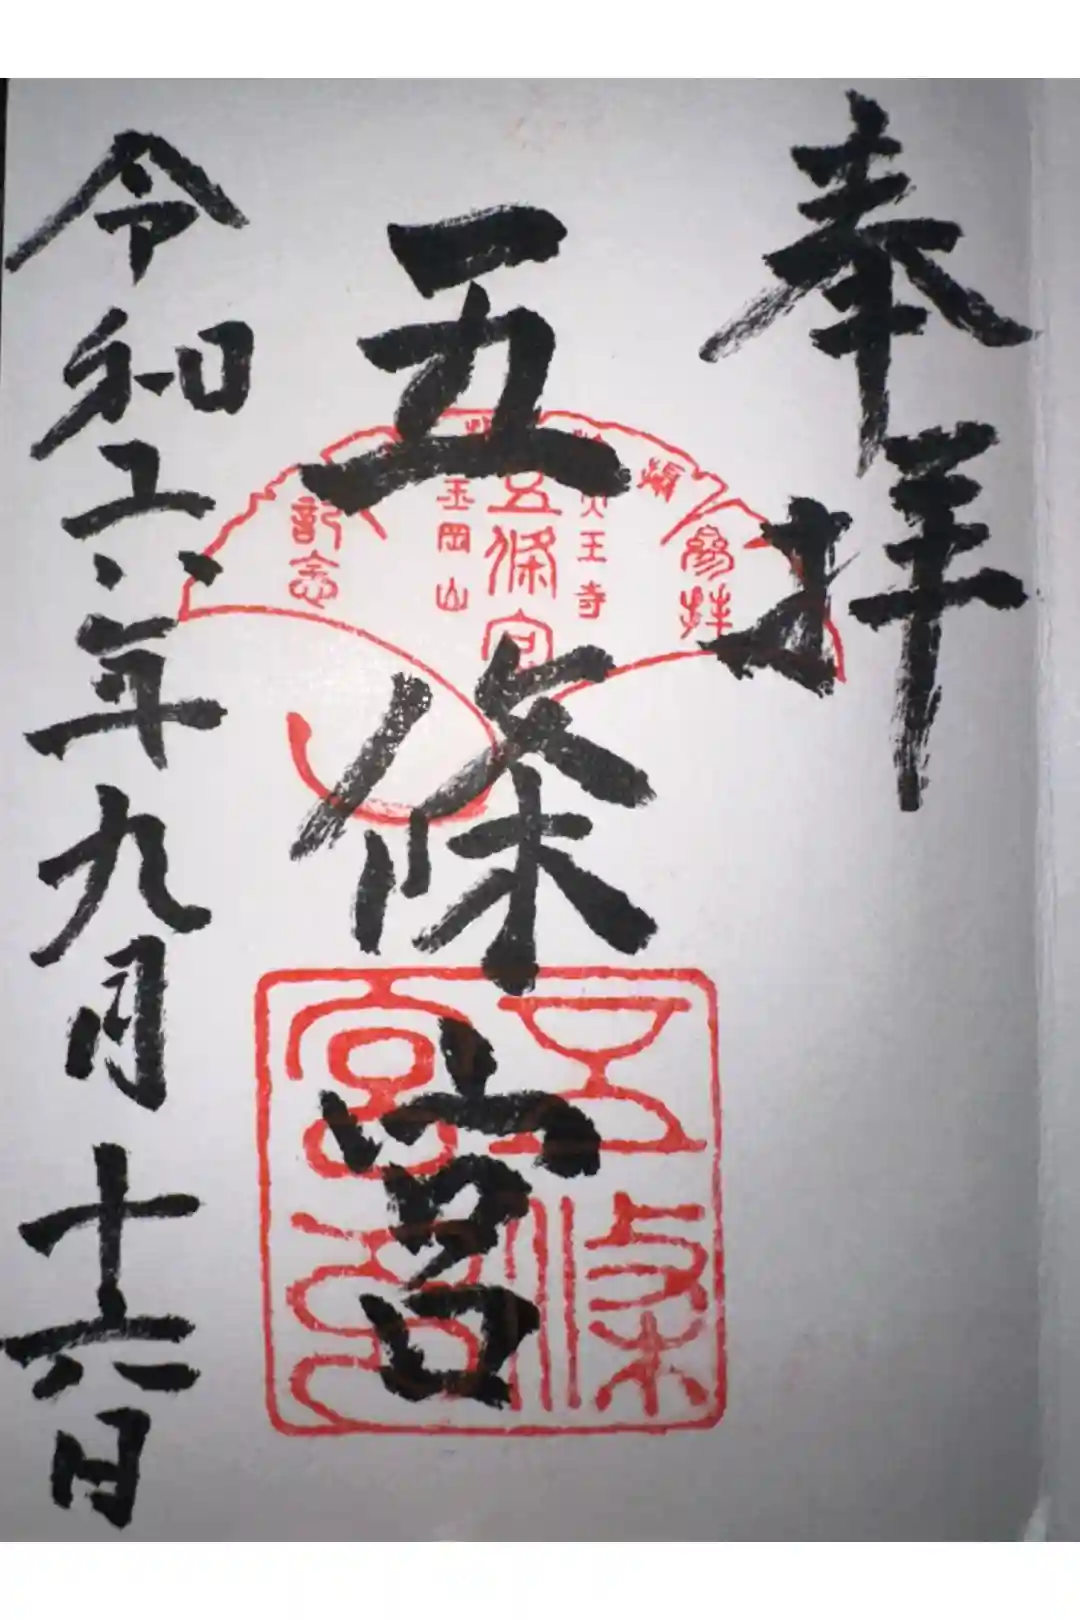 奉拝
五條宮
令和六年九月十六日
參拝
攝
王寺
五條宮
岡山
記念
五條
宮印